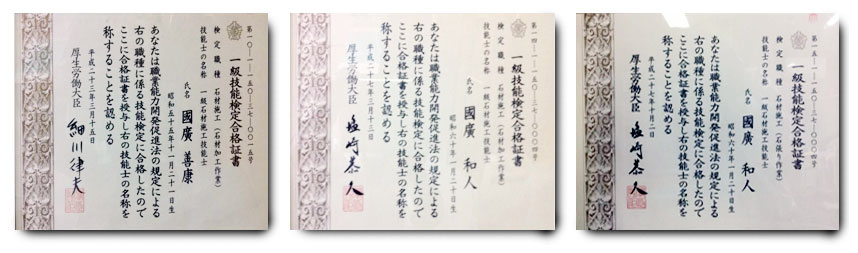 第一〇-一-一五〇-三七-〇〇一五号
一級技能検定合格証書
検定職種 石材施工(石材加工作業)
技能士の名称 一級石材施工技能士
氏名 國廣 善康
昭和五十五年十一月二十一日生
あなたは職業能力開発促進法の規定による
右の職種に係る技能検定に合格したので
ここに合格証書を授与し右の技能士の名称を
称することを認める
平成二十三年三月十五日
厚生労働大臣 細川律夫
第一四-一-一五〇-三七-〇〇〇四号
一級技能検定合格証書
検定職種 石材施工(石材加工作業)
技能士の名称 一級石材施工技能士
氏名 國廣 和人
昭和六十年一月二十日生
あなたは職業能力開発促進法の規定による
右の職種に係る技能検定に合格したので
ここに合格証書を授与し右の技能士の名称を
称することを認める
平成二十七年三月十三日
厚生労働大臣 塩崎恭久
第一五-一-一五〇-三七-〇〇〇四号
一級技能検定合格証書
検定職種 石材施工(石張り作業)
技能士の名称 一級石材施工技能士
氏名 國廣 和人
昭和六十年一月二十日生
あなたは職業能力開発促進法の規定による
右の職種に係る技能検定に合格したので
ここに合格証書を授与し右の技能士の名称を
称することを認める
平成二十七年十月二日
厚生労働大臣 塩崎恭久